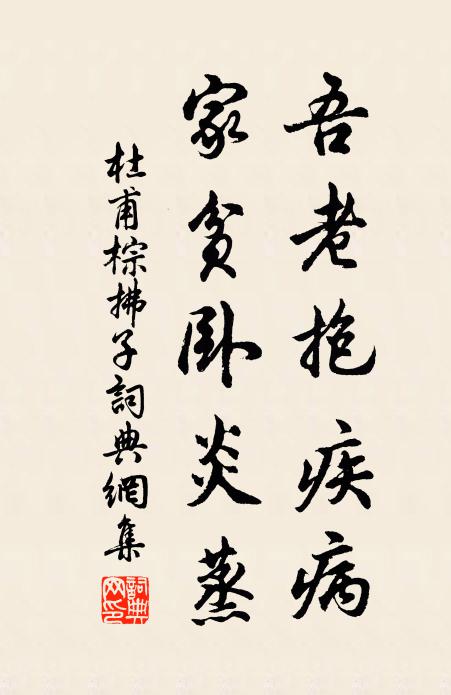 吾老抱疾病
家貧卧炎蒸
杜甫棕拂子詞典網集
詞典網印